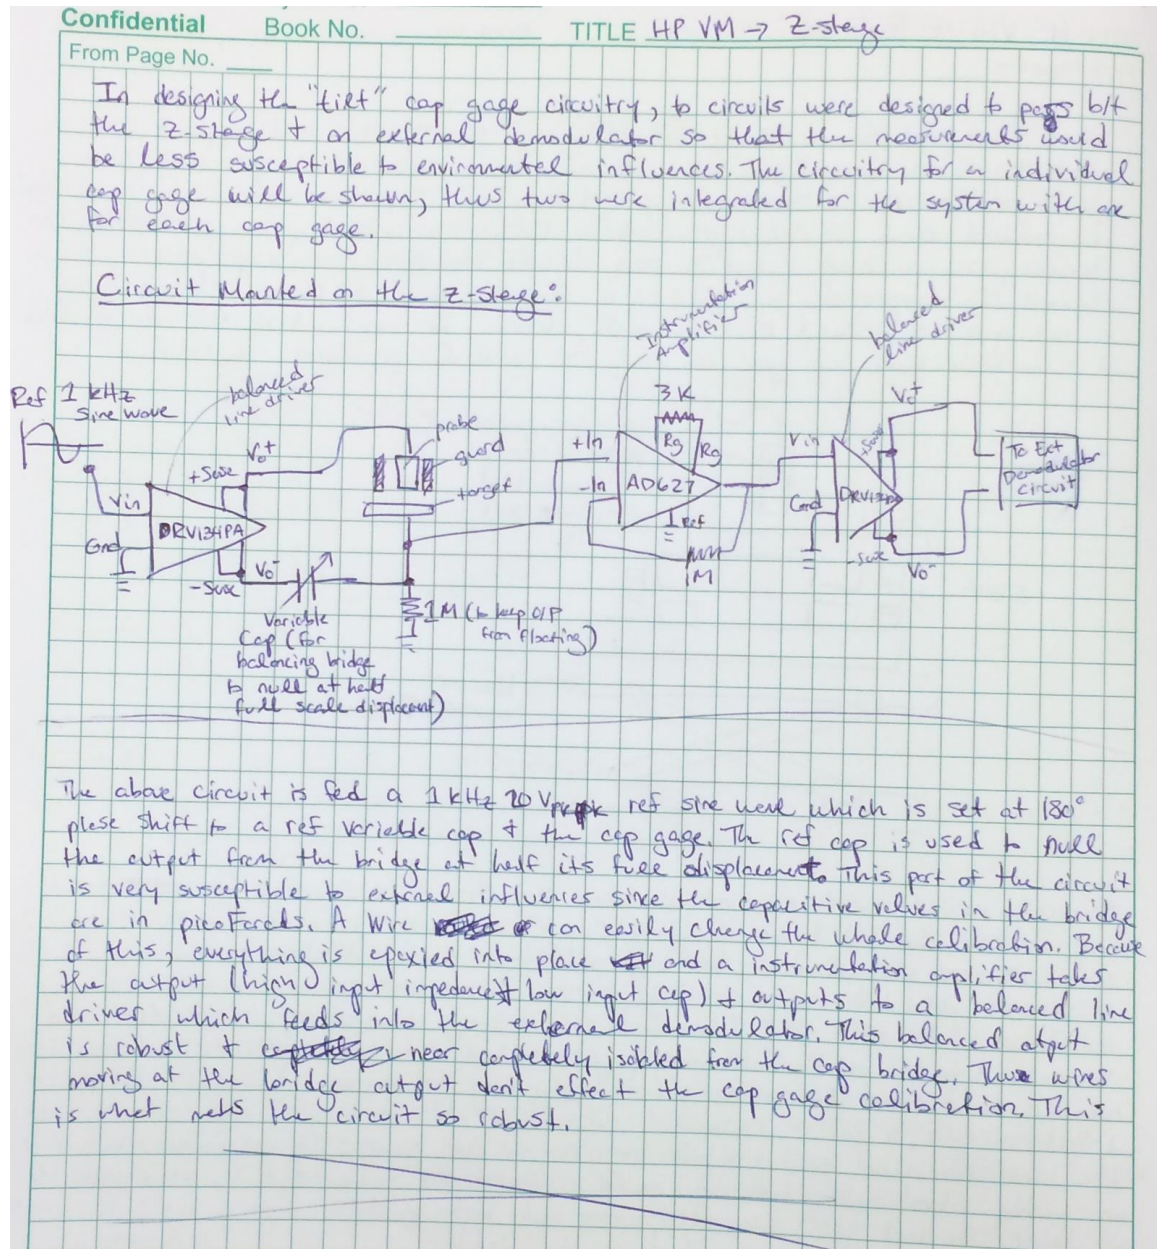 Confidential
Book No.
TITLE HP VM → Z-stage
From Page No.
In designing the "tilt" cap gage circuitry, to circuits were designed to pass b/t
the z-stage + an external demodulator so that the measurements would
be less susceptible to enviromental influences. The circuitry for a individual
cap gage will be shown, thus two were integrated for the system with one
for each cap gage.
Circuit Mounted on the z-stage:
Instrumentation
Amplifier
balanced
line driver
Ref 1 kHz
Sine wave
balanced
line driver
3K
Vo+
probe
guard
target
+Sense
Vo+
+In
Rg
Rg
Vin
+Sense
To Ext
Demodulator
Circuit
Vin
-In
AD627
Gnd
DRV134PA
DRV134
Ref
Gnd
-Sense
Vo-
-Sense
Vo-
1M
Variable
Cap (for
balancing bridge
to null at half
full scale displacment)
1M (to keep O/P
from floating)
The above circuit is fed a 1kHz 20 Vpk-pk ref sine wave which is set at 180°
phase shift to a ref variable cap + the cap gage. The ref cap is used to null
the output from the bridge at half its full displacement. This part of the circuit
is very susceptible to external influences since the capacitive values in the bridge
are in picoFarads. A wire can easily change the whole calibration. Because
of this, everything is epoxied into place and a instrumentation amplifier takes
the output (high input impedance + low input cap) + outputs to a balanced line
driver which feeds into the external demodulator. This balanced output
is robust + near completely isolated from the cap bridge. Thus wires
moving at the bridge output don't effect the cap gage calibration. This
is what makes the circuit so robust.